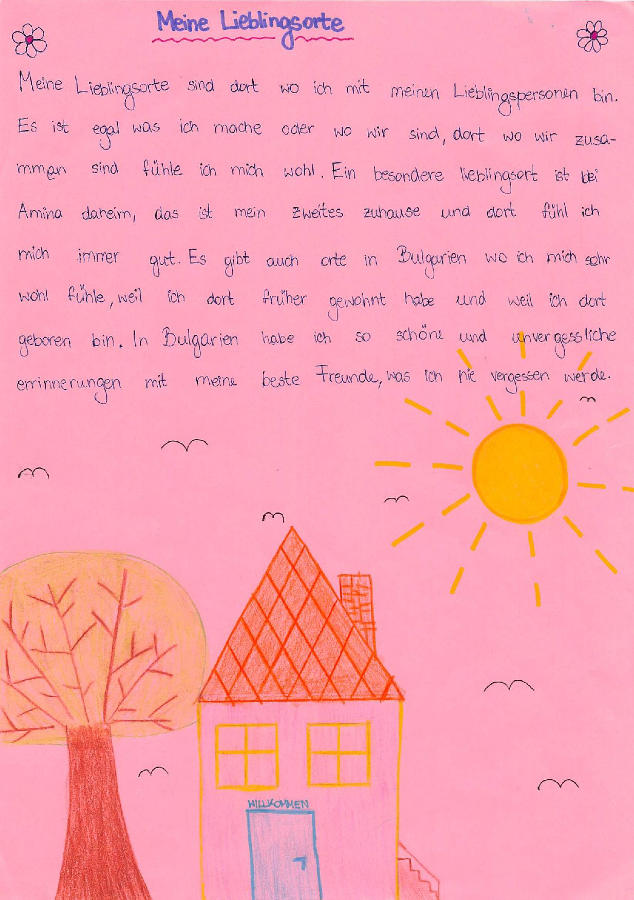 Meine Lieblingsorte
Meine Lieblingsorte sind dort wo ich mit meinen Lieblingspersonen bin.
Es ist egal was ich mache oder wo wir sind, dort wo wir zusa-
mmen sind fühle ich mich wohl. Ein besondere lieblingsort ist bei
Amina daheim, das ist mein zweites zuhause und dort fühl ich
mich immer gut. Es gibt auch orte in Bulgarien wo ich mich sehr
wohl fühle, weil ich dort früher gewohnt habe und weil ich dort
geboren bin. In Bulgarien habe ich so schöne und unvergessliche
errinnerungen mit meine beste Freunde, was ich nie vergessen werde.
WILLKOMMEN